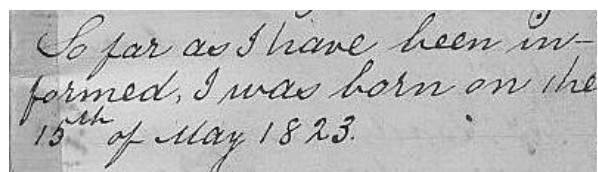 So far as I have been in-
formed, I was born on the
15th of May 1823.